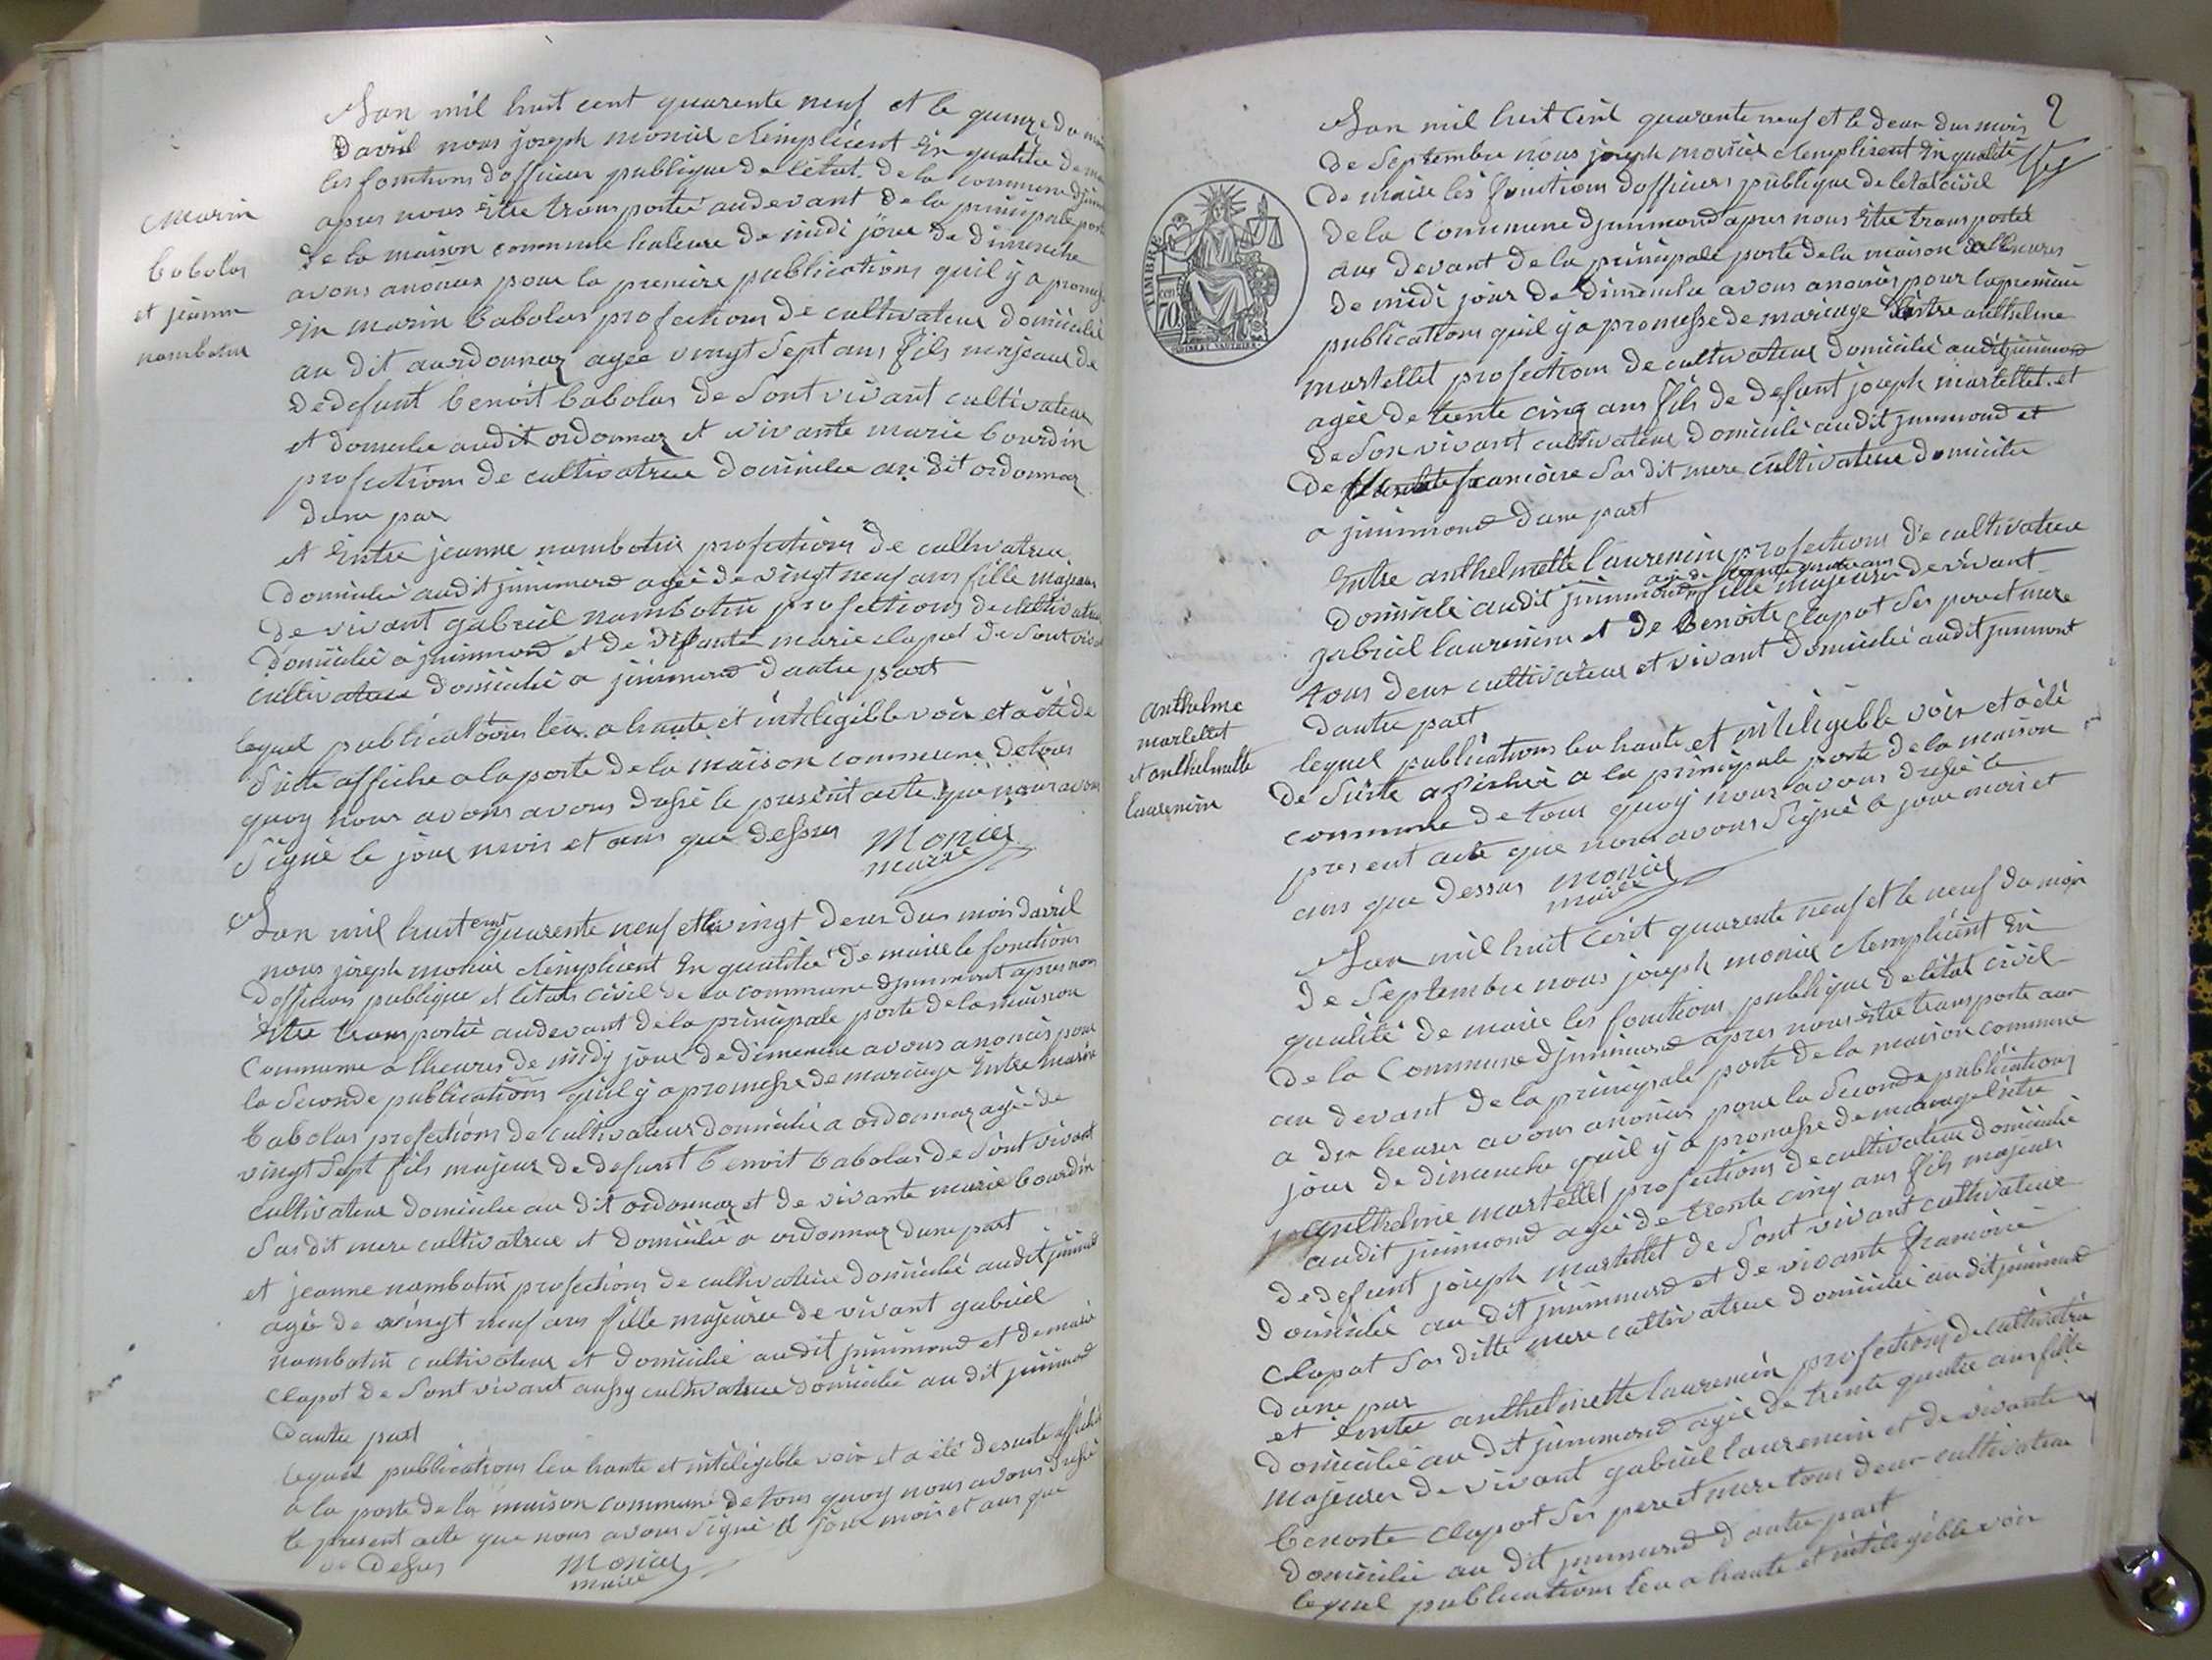 Marin
babolas
et jeanne
nambotin
Lan mil huit cent quarente neuf et le quinze du
Davril nous joseph monier Remplicent En qualitée de
les fonctions dofficier publique de létat de la commune
apres nous Etre transportée audevant de la principale porte
de la maison commune haleure de midi jour de dimenche
avons anonces pour la premiere publications quil y a promesse
En marin babolas profections de cultivateur domicilié
au dit aurdonnaz agée vingt Sept ans fils majeaur de
de defunt benoit babolas de Sont vivant cultivateur
et domicilie audit ordonnaz et vivante marie bourdin
profections de cultivatrice domicilee au dit ordonnaz
dune par
et Entre jeanne nambotin profections de cultivatrice
domicilié audit jnnimond agée de vingt neuf ans fille majeure
de vivant gabriel nambotin profections de cultivateur
domicilié a jnnimond et de defante marie clapot de Sont vivant
cultivatrice domicilié a jnnimond dautre part
lequel publications leu a haute et intéligible voix et a été de
Suite affiche a la porte de la maison commune de tous
quoy nous avons avons dressé le present acte que nous avons
Signé le jour mois et ans que dessus Monier
maire
Lan mil huit cent quarente neuf et le vingt deux dus mois davril
nous joseph monier Remplicent En qualitée de maire le fonctions
dofficiers publique et létats civil de la commune djnnimont apres nous
Etre transportée audevant de la principale porte de la maison
Commune a lheures de midy jour de dimenche avons anonces pour
la Seconde publications quil y a promesse de mariage Entre marin
babolas profections de cultivateurs domicilié a ordonnaz agée de
vingt Sept fils majeur de defunt benoit babolas de Sont vivant
cultivateur domicilie au dit ordonnaz et de vivante marie bourdin
Sas dit mere cultivatrice et domicilié a ordonnaz dune part
et jeanne nambotin profections de cultivatrice domicilié audit jnnimond
agée de vingt neuf ans fille majeure de vivant gabriel
nambotin cultivateur et domicilie audit jnnimond et de marie
clapot de Sont vivant aussy cultivatrice domicilié au dit jnnimond
dautre part
lequel publications leu haute et intéligible voix et a été de suite affiché
a la porte de la maison commune de tous quoy nous avons dressé
le present acte que nous avons Signé le jour mois et ans que
de Dessus Monier
maire
2
TIMBRE
70
Lan mil huit Cent quarante neuf et le deux dus mois
de Septembre nous joseph monier Remplisent En qualité
de maire les fonctions dofficiers publique de létat civil
de la Commune djnnimond apres nous Etre transportée
aux devant de la principale porte de la maison a lheures
de midi jour de dimenche avons anonces pour la premiere
publications quil y a promesse de mariage Entre anthelme
martellet profections de cultivateur domicilié audit jnnimond
agée de trente cinq ans fils de defunt joseph martellet et
de Son vivant cultivateur domicilié audit jnnimond et
de francoise Sas dit mere cultivatrice domicilie
a jnnimond dune part
Entre anthelmette laurencin profections de cultivatrice
agée de trente quatre ans
domicilé audit jnnimond fille majeure de vivant
gabriel laurencin et de Benoite clapot Ses pere et mere
tous deux cultivateur et vivant domicilié audit jnnimont
dautre part
anthelme
martellet
et anthelmette
laurencin
lequel publications leu haute et intéligible voix et a été
de Suite afichée a la principale porte de la maison
commune de tous quoy nous avons dressé le
present acte que nous avons Signé le jour mois et
ans que dessus monier
maire
Lan mil huit Cent quarente neuf et le neuf du mois
de Septembre nous joseph monier Remplicent En
qualité de maire les fonctions publique de létat civil
de la Commune djnnimond apres nous Etre transporte aux
au devant de la principale porte de la maison commune
a dix heures avons anonces pour la Seconde publications
jour de dimanche quil y a promesse de mariage Entre
anthelme martellet profections de cultivateur domicilié
audit jnnimond agée de trente cinq ans fils majeur
de defunt joseph martellet de Sont vivant cultivateur
domicilié au dit jnnimond et de vivante francoise
clapot Sas ditte mere cultivatrice domicilié au dit jnnimond
dune par
et Entre anthelmette laurencin profections de cultivatrice
domicilié au dit jnnimond agée de trente quatre ans fille
majeure de vivant gabriel laurencin et de vivante
benoite clapot Ses pere et mere tous deux cultivateur
domicilié au dit jnnimond dautre part
lequel publications leu a haute et intéligible voix